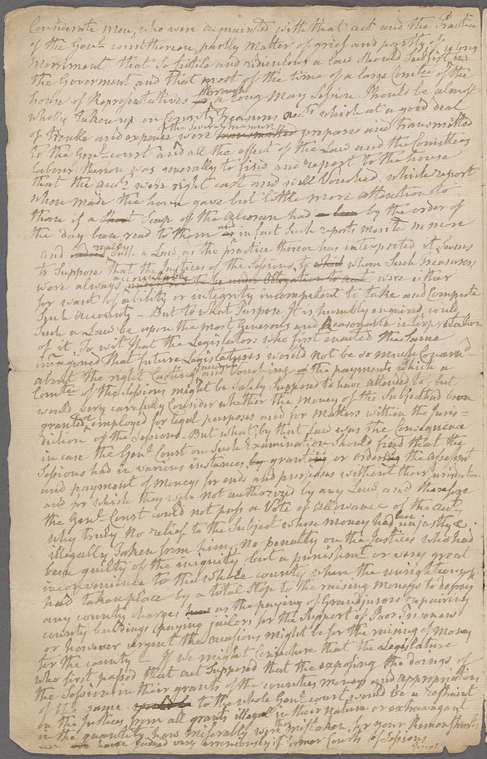 Considerate men, who were acquainted with that act and the Practice
of the Genl. court thereon, partly matter of grief and partly of
merriment that so futile and ridiculous a law should subsist so long in
the Goverment and that most of the time of a large Comtee of the
house of Representatives through a long May Session should be almost
wholly taken up in County Treasurers accts which at a good deal
of trouble and expence were prepared and transmitted
to the Genl. court and all the effect of the Law and the Countless
Labour thereon was generally to and report to the house
that the accts were right cast and well Vouched, which report
when made the house gave but little more attention to
than if a Scrap of the Alcoran had by the order of
the day been read to them and in fact such report meant no more
and such a Law, as the practice thereon has interpreted it, seems
to suppose that the Justices of the Sessions, to whom such treasurers
were always accountable were either
for want of ability or integrity incompetent to take and Compute
such accounts – But to what Purpose, it is humbly enquired, could
such a Law be upon the most Generous and Reasonable interpretation
of it. To wit that the Legislators who first enacted the same
imagined that future Legislatures would not be so much Concernd
about the right Casting and vouching of the payments which a
Comtee of the Sessions might be safely supposd to have allowed to, but
would very carefully Consider whether the money of the Subject had been
granted & employed for legal purposes and for matters within the Juris-
diction of the Sessions. But what by that law was the Consequence
in case the Genl. Court on such Examination should find that the
Sessions had in various instances, granted or ordered the assessmt
and payment of money for ends and purposes without their jurisdiction
and for which they were not authorized by any Law and therefore
the Genl. Court would not pass a Vote of allowance of the acct
why truly no relief to the Subject whose money had been unjustly &
illegally taken form him, no penalty on the Justices who had
been guilty of the iniquity, but a punishmt or very great
inconvenience to the whole county where the unrighteous
had taken place by a total stop to the raising moneys to defray
any county charges as the paying of Grandjurors repairing
county buildings, paying jailors for the Support of Poor Prisoners
or however urgent the occasions might be for the raising of Money
for the county – If we might Conjecture that the Legislature
who first passed that act supposed that the exposing the doings of
the Sessions in their grants of the counties money and appropriations
of the same to the whole Genl. court would be a restraint
on the Justices from all grants illegal in their nature or extravagant
in the quantity, how miserably were they mistaken for your Remonstrants
have Judged very erroneously if former Courts of Sessions